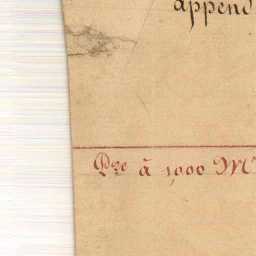 append
à 1,000 M